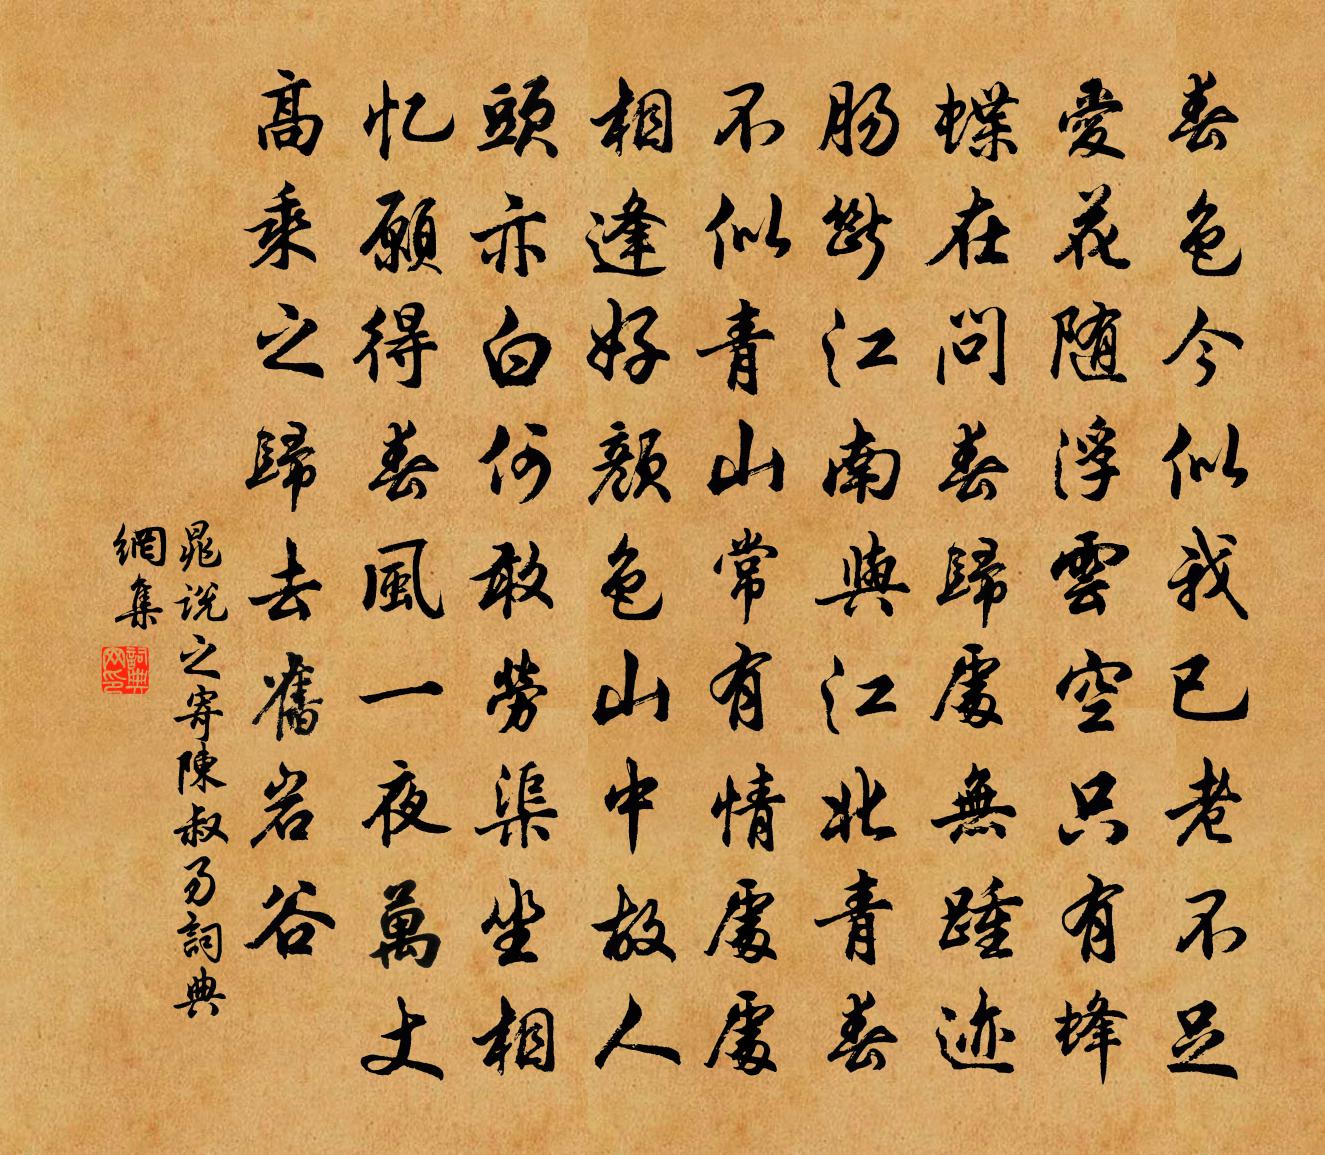 春色今似我已老不足
愛花随浮雲空只有蜂
蝶在問春歸處無踵迹
肠斷江南與江北青春
不似青山常有情處處
相逢好顔色山中故人
頭亦白何敢勞渠坐相
忆願得春風一夜萬丈
高乘之歸去舊岩谷
晁説之寄陳叔易詞典
網集
詞典網印